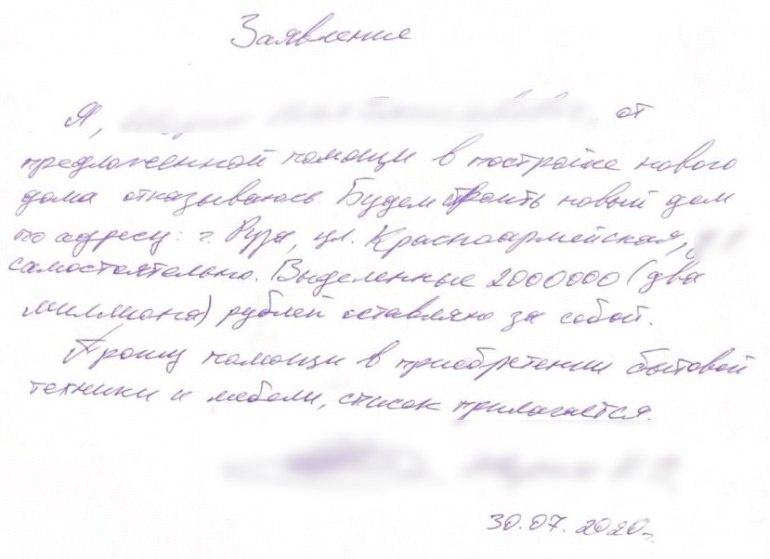 Заявление
Я, от
предложенной помощи в постройке нового
дома отказываюсь. Будем строить новый дом
по адресу: г. Руза, ул. Красноармейская,
самостоятельно. Выделенные 2000000 (два
миллиона) рублей оставляю за собой.
Прошу помощи в приобретении бытовой
техники и мебели, список прилагается.
30.07.2020г.